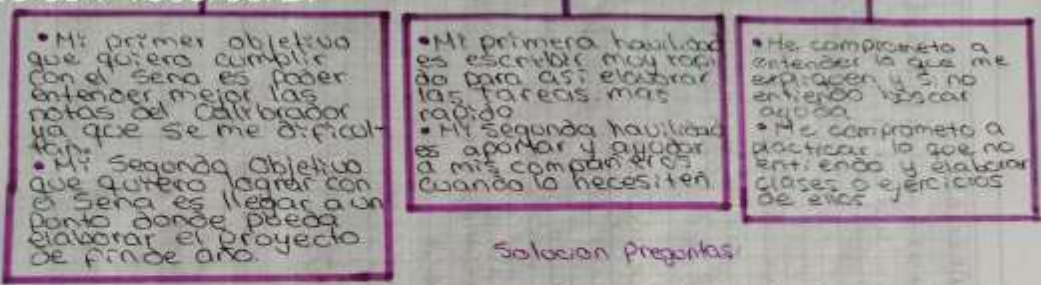 • Mi primer objetivo
que quiero cumplir
con el sena es poder
entender mejor las
notas del Calibrador
ya que se me dificul-
tan.
• Mi Segundo Objetivo
que quiero lograr con
el Sena es llegar a un
Punto donde pueda
elaborar el proyecto
de fin de año.
• Mi primera havilidad
es escribir muy rapi
do para asi elaborar
las tareas mas
rapido
• Mi segunda havilidad
es aportar y ayudar
a mis compañeros
cuando lo necesiten
• Me comprometo a
entender lo que me
expliquen y si no
entiendo buscar
ayuda
• Me comprometo a
practicar lo que no
entiendo y elaborar
clases o ejercicios
de ellos
Solocion Preguntas